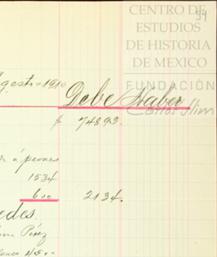 CENTRO DE
ESTUDIOS
DE HISTORIA
DE MEXICO
FUNDACIÓN
Carlos Slim
Agosto 1910
Debe Haber
$ 74893.
á peones
1534
600 2134.
Pérez